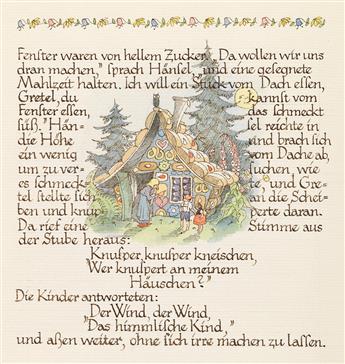 Fenster waren von hellem Zucker. „Da wollen wir uns
dran machen," sprach Hänsel, „und eine gesegnete
Mahlzeit halten. Ich will ein Stück vom Dach essen,
Gretel, du kannst vom
Fenster essen, das schmeckt
süß." Hän= sel reichte in
die Höhe und brach sich
ein wenig vom Dache ab,
um zu ver= suchen, wie
es schmeck= te, und Gre=
tel stellte sich an die Schei=
ben und knup= perte daran.
Da rief eine Stimme aus
der Stube heraus:
„Knusper, knusper kneischen,
Wer knuspert an meinem
Häuschen?"
Die Kinder antworteten:
„Der Wind, der Wind,
Das himmlische Kind,"
und aßen weiter, ohne sich irre machen zu lassen.